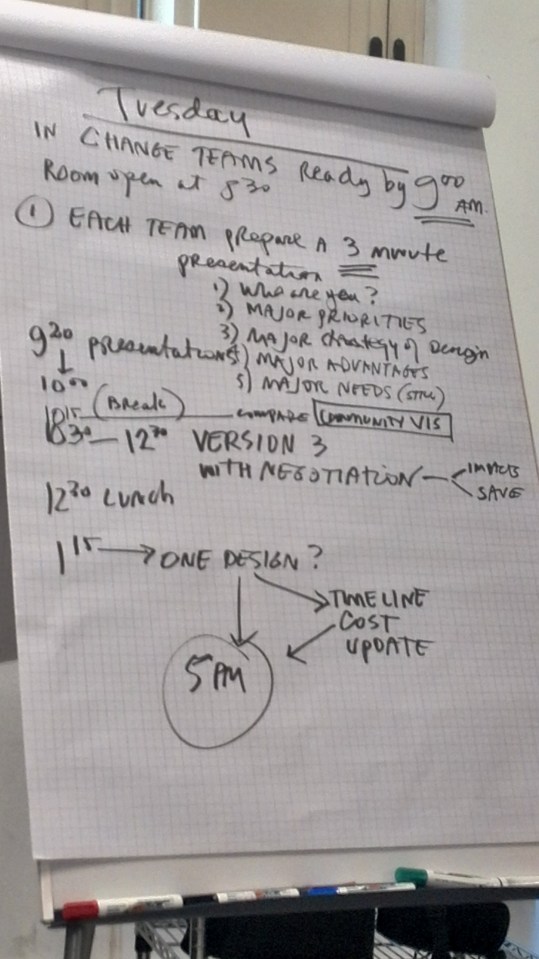 Tuesday
IN CHANGE TEAMS Ready by 9⁰⁰ AM.
Room open at 8³⁰
① EACH TEAM prepare A 3 minute
presentation
1) Who are you?
2) MAJOR PRIORITIES
3) MAJOR strategy of Design
9²⁰ presentations
4) MAJOR ADVANTAGES
↓
10⁰⁰
5) MAJOR NEEDS (STILL)
10¹⁵ (Break) COMPARE COMMUNITY VIS
10³⁰ — 12³⁰ VERSION 3
WITH NEGOTIATION — IMPACTS
SAVE
12³⁰ Lunch
1¹⁵ → ONE DESIGN?
TIMELINE
COST
UPDATE
5 PM